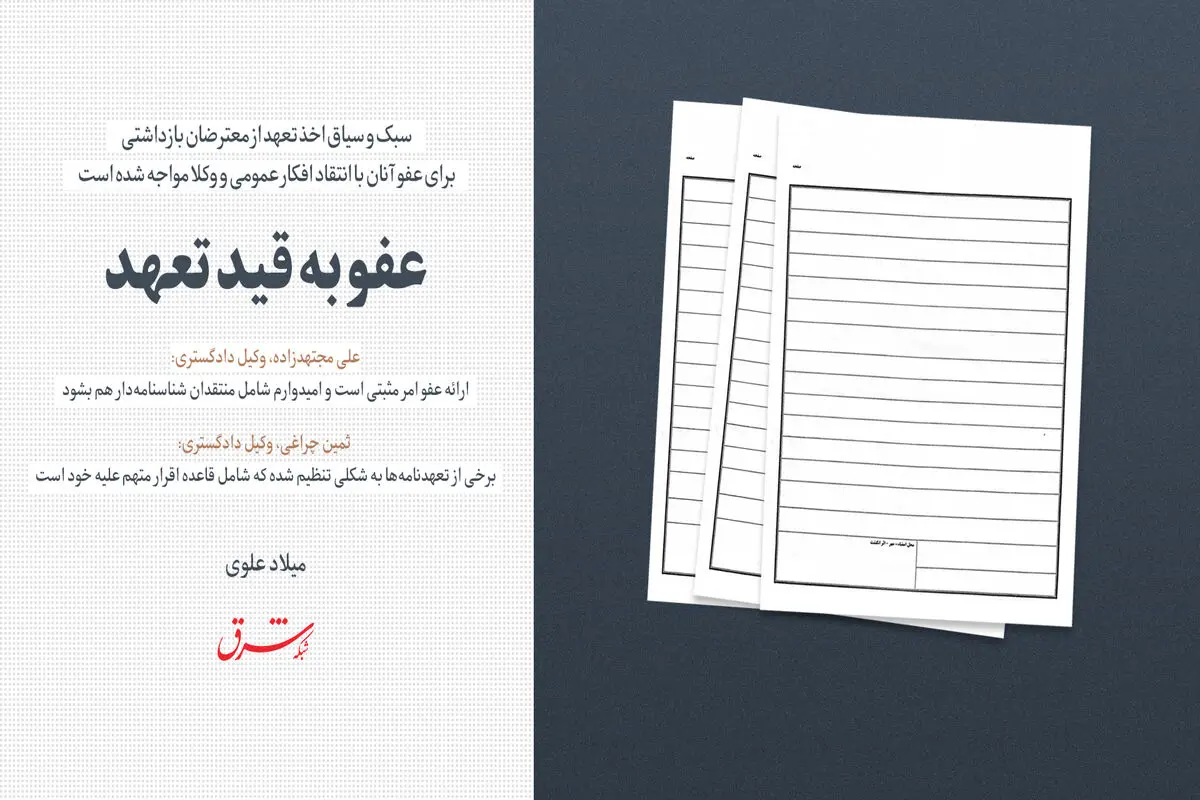 سبک و سیاق اخذ تعهد از معترضان بازداشتی
برای عفو آنان با انتقاد افکار عمومی و وکلا مواجه شده است
عفو به قید تعهد
علی مجتهدزاده، وکیل دادگستری:
ارائه عفو امر مثبتی است و امیدوارم شامل منتقدان شناسنامه‌دار هم بشود
ثمین چراغی، وکیل دادگستری:
برخی از تعهدنامه‌ها به شکلی تنظیم شده که شامل قاعده اقرار متهم علیه خود است
میلاد علوی
شبکه شرق
صفحه
صفحه
صفحه
محل امضاء - مهر - اثر انگشت